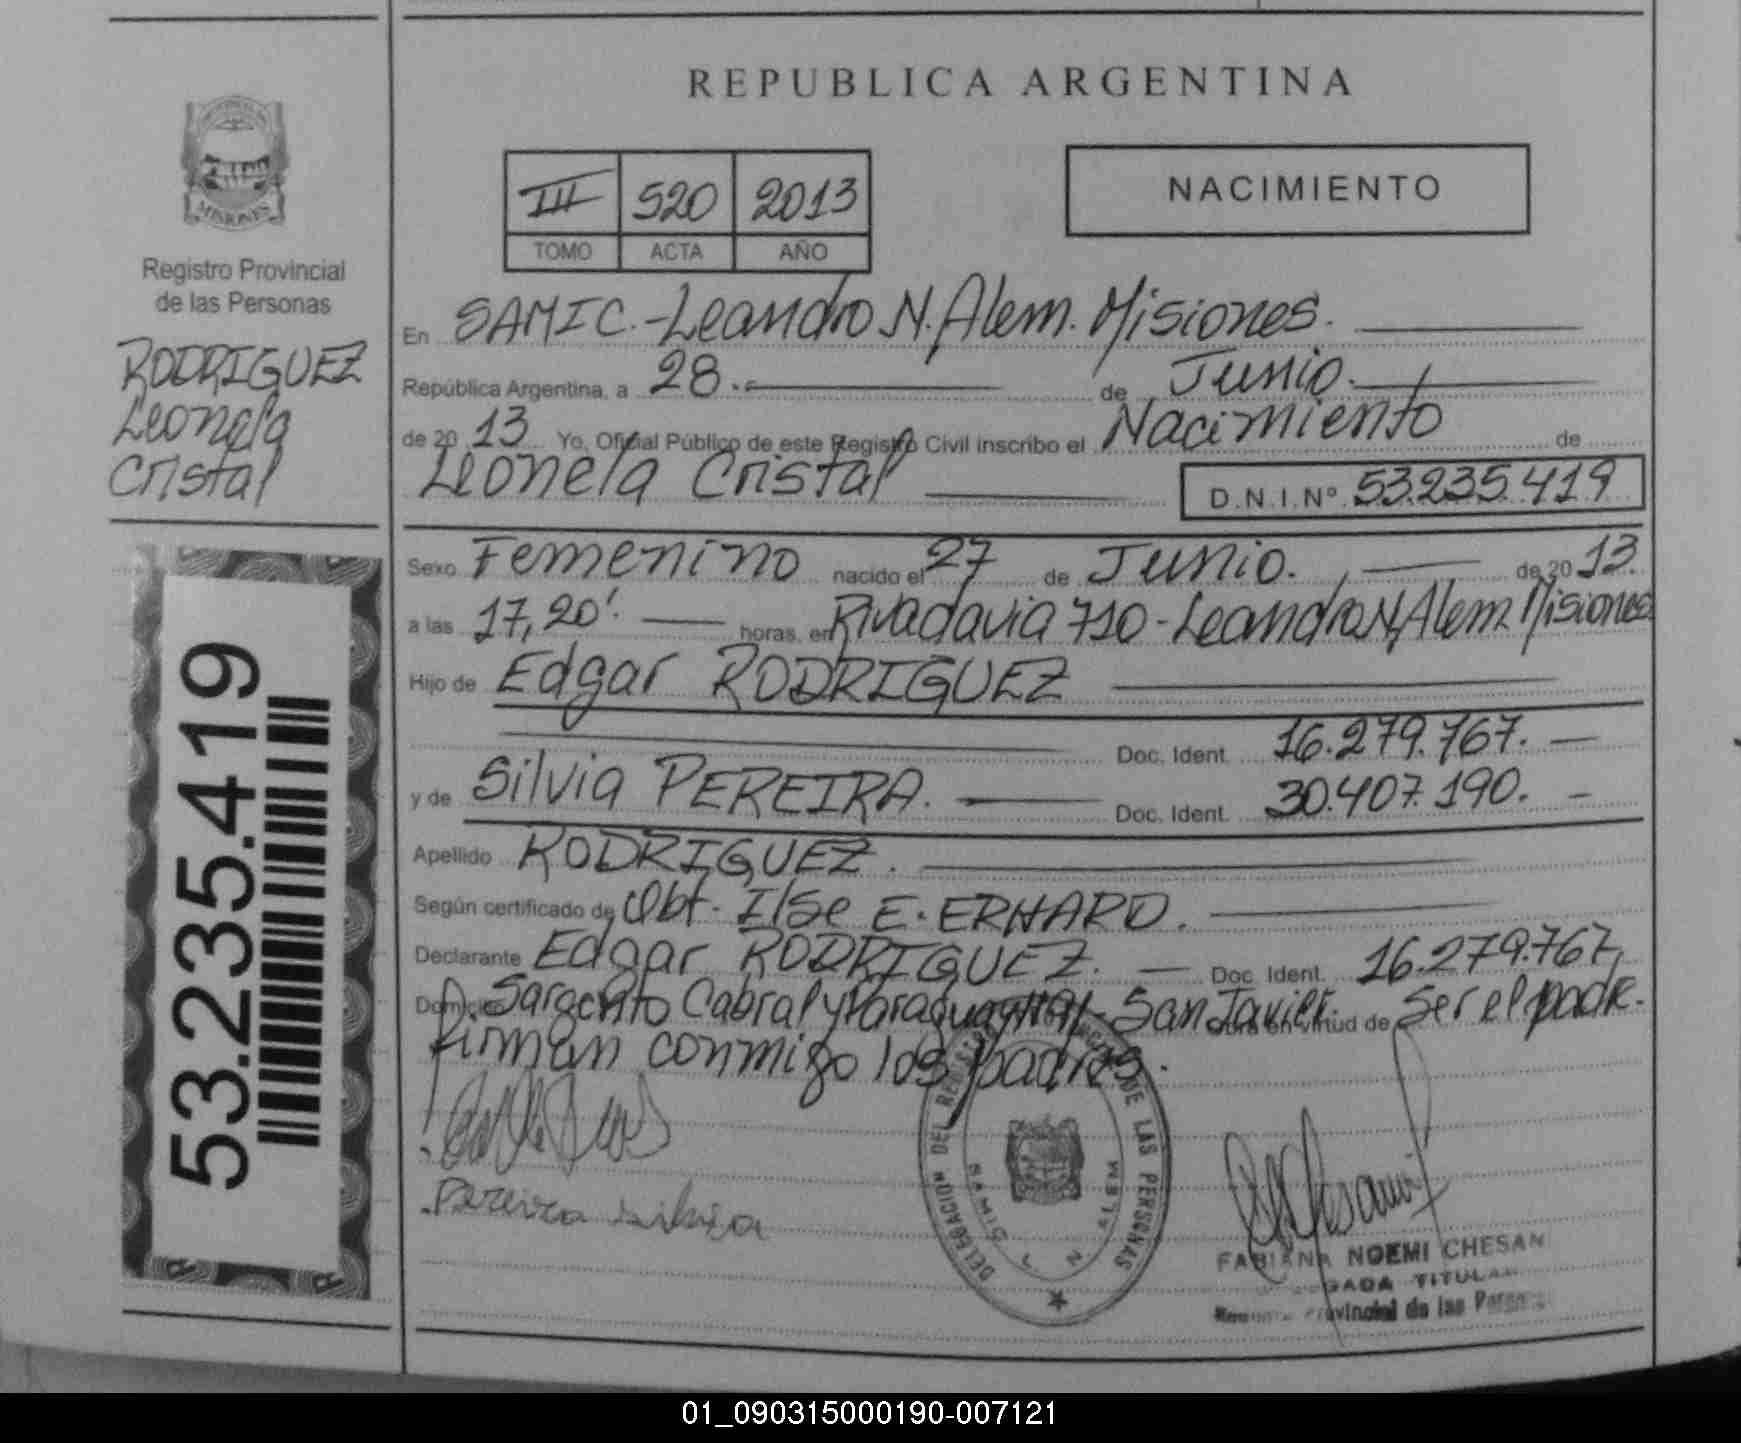 REPUBLICA ARGENTINA
NACIMIENTO
III 520 2013
TOMO ACTA AÑO
MISIONES
Registro Provincial
de las Personas
RODRIGUEZ
Leonela
Cristal
53.235.419
En SAMIC.-Leandro N. Alem. Misiones.
República Argentina, a 28. de Junio.
de 20 13 Yo, Oficial Público de este Registro Civil inscribo el Nacimiento de
Leonela Cristal D.N.I.Nº 53.235.419
Sexo Femenino nacido el 27 de Junio. de 20 13.
a las 17,20'. horas, en Rivadavia 710-Leandro N. Alem. Misiones
Hijo de Edgar RODRIGUEZ
Doc. Ident. 16.279.767.
y de Silvia PEREIRA. Doc. Ident. 30.407.190.
Apellido RODRIGUEZ.
Según certificado de Obt. Ilse E. ERHARD.
Declarante Edgar RODRIGUEZ. Doc. Ident. 16.279.767,
Domicilio Sargento Cabral y Paraguay - San Javier. Obra en virtud de Ser el padre.
Firman conmigo los padres.
Pereira Silvia
DELEGACION DEL REGISTRO DE LAS PERSONAS
L N ALEM
FABIANA NOEMI CHESANI
TITULAR
Provincial de las Personas
01_090315000190-007121